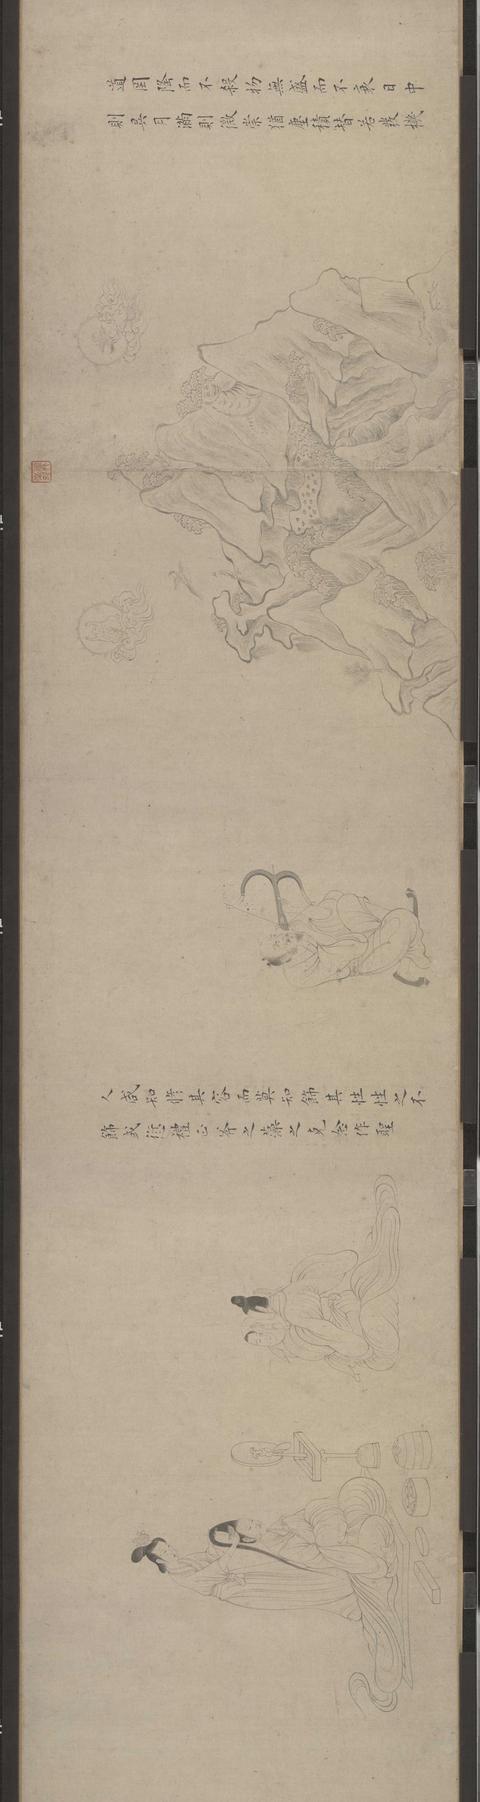 道罔隆而不殺物無盛而不衰日中
則昃月滿則微崇猶塵積替若駭機
人咸知脩其容而莫知飾其性性之不
飾或愆禮正斧之藻之克念作聖